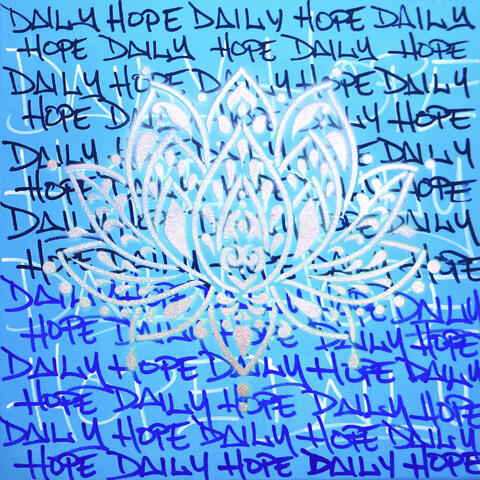 DAILY HOPE DAILY HOPE DAILY
HOPE DAILY HOPE DAILY HOPE
DAILY HOPE DAILY HOPE DAILY
HOPE DAILY DAILY HOPE
DAILY HOPE DAILY
HOPE DAILY HOPE
DAILY HOPE DAILY
HOPE DAILY HOPE
DAILY HOPE DAILY HOPE DAILY
HOPE DAILY HOPE DAILY HOPE
DAILY HOPE DAILY HOPE DAILY
HOPE DAILY HOPE DAILY HOPE
DAILY HOPE DAILY HOPE DAILY
HOPE DAILY HOPE DAILY HOPE